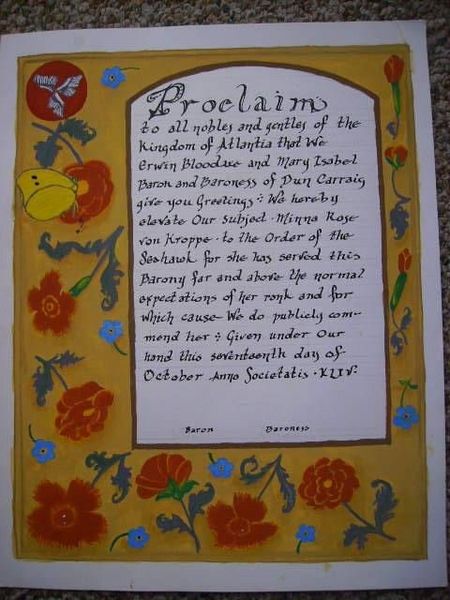 Proclaim
to all nobles and gentles of the
Kingdom of Atlantia that We
Erwin Bloodaxe and Mary Isabel
Baron and Baroness of Dun Carraig
give you Greetings : We hereby
elevate Our subject · Minna Rose
von Kroppe · to the Order of the
Seahawk for she has served this
Barony far and above the normal
expectations of her rank and for
which cause We do publicly com-
mend her : Given under Our
hand this seventeenth day of
October Anno Societatis · XLIV ·
Baron Baroness